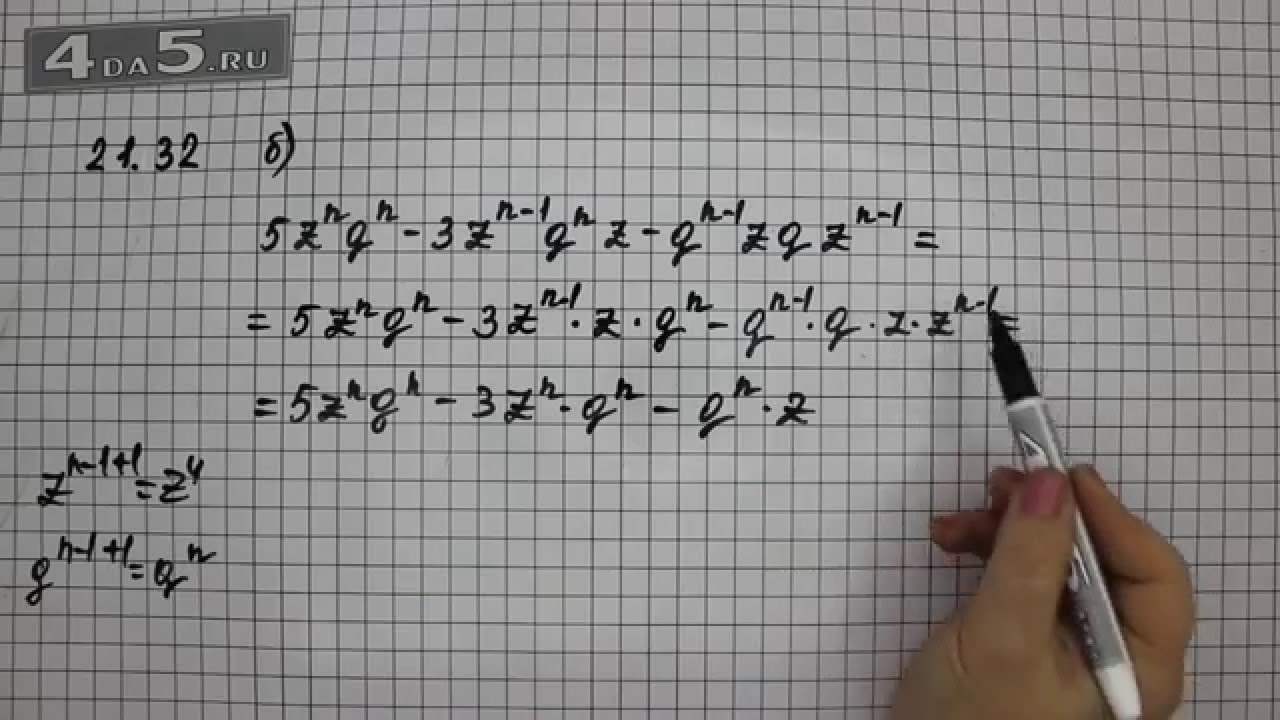 4DA5.RU
21.32 б)
5zⁿqⁿ - 3zⁿ⁻¹qⁿz - qⁿ⁻¹zqzⁿ⁻¹ =
= 5zⁿqⁿ - 3zⁿ⁻¹·z·qⁿ - qⁿ⁻¹·q·z·zⁿ⁻¹ =
= 5zⁿqⁿ - 3zⁿ·qⁿ - qⁿ·z
zⁿ⁻¹⁺¹ = z⁴
qⁿ⁻¹⁺¹ = qⁿ